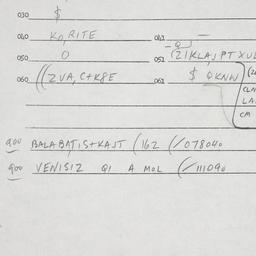 030 $
040 KO, RITE 041 —
050 0 051 (21KLAJPTXUL
060 ((ZVA, C+K8E 061 $ QKNN
CLA
LA
CM
900 BALABATIS+KAJT (162 (/078040
900 VENISIZ QI A MOL (/111090